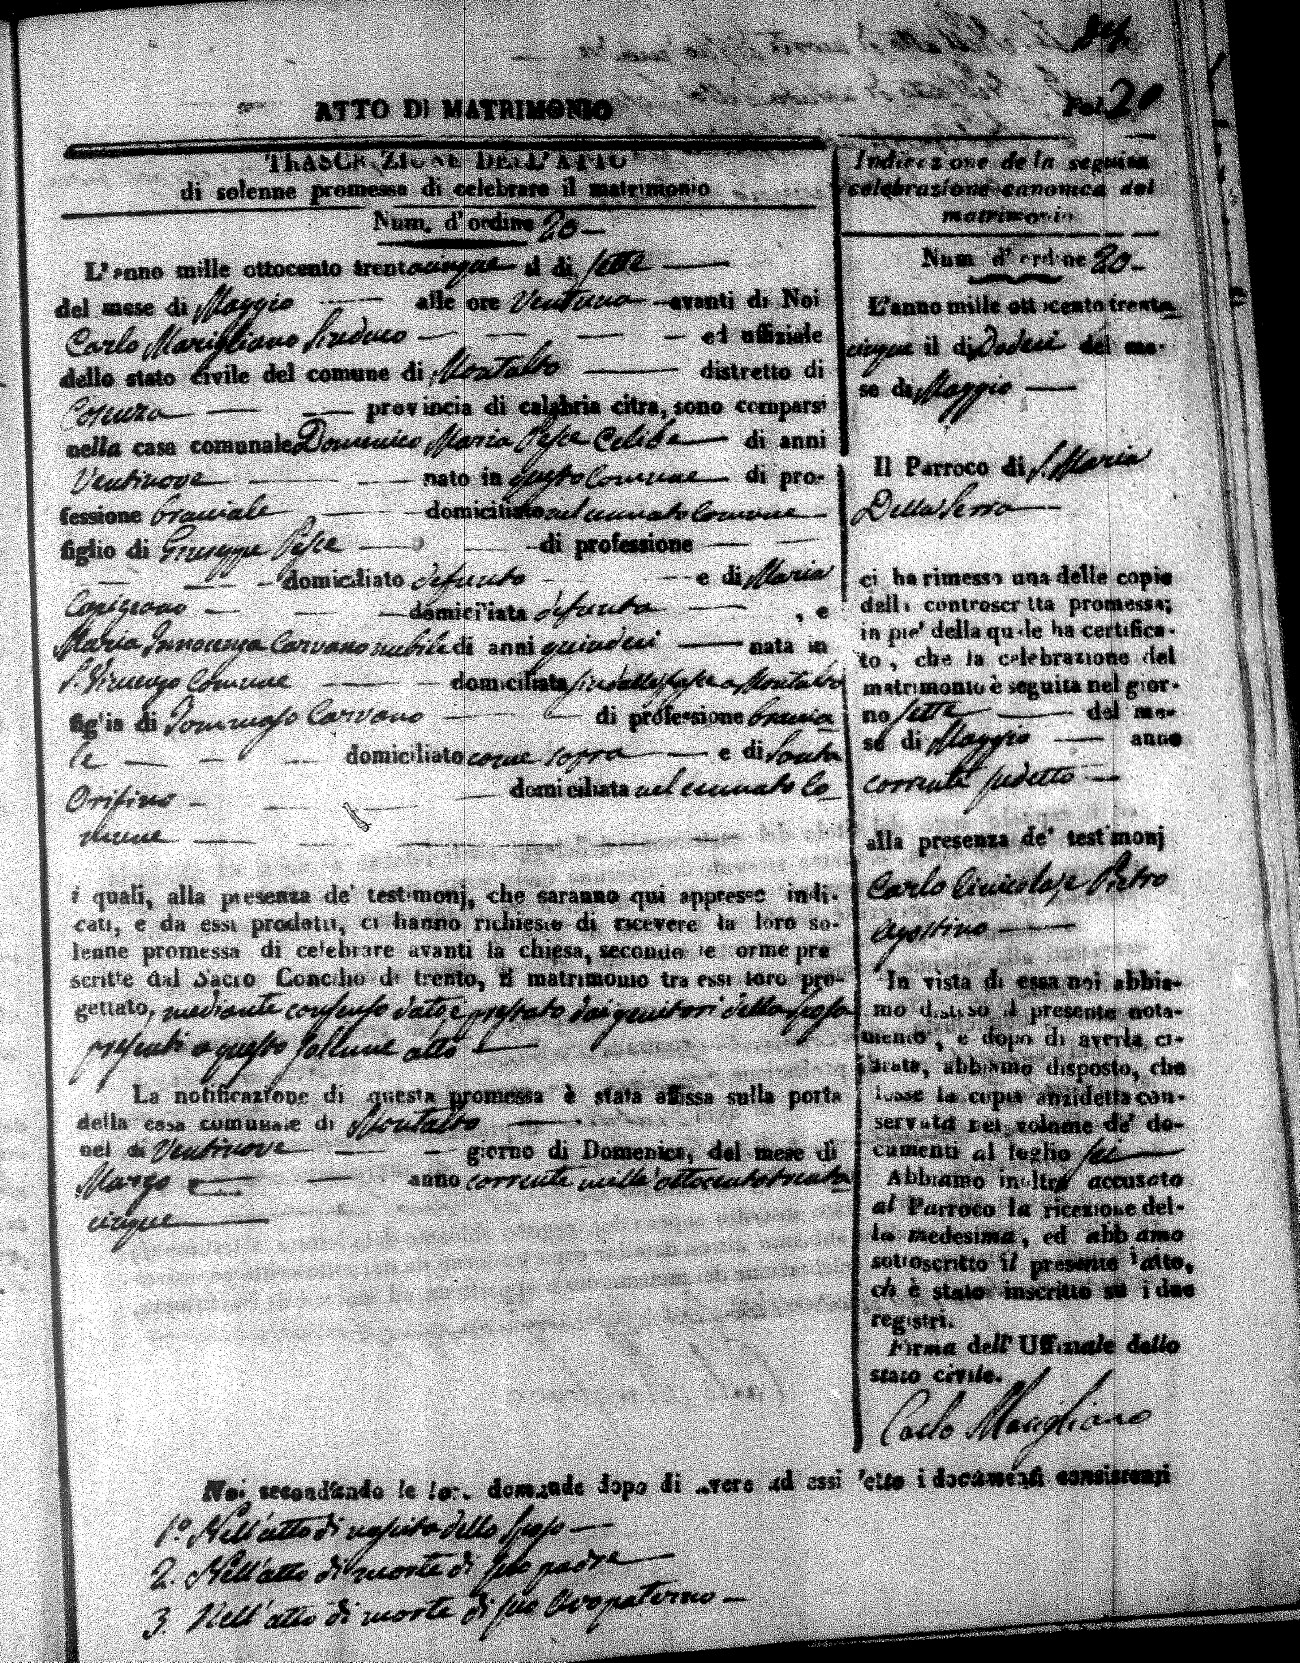 Fol. 20
ATTO DI MATRIMONIO
TRASCRIZIONE DELL'ATTO
di solenne promessa di celebrare il matrimonio
Num. d'ordine 20
L'anno mille ottocento trentacinque il di sette
del mese di Maggio alle ore Ventuno avanti di Noi
Carlo Marigliano Sindaco ed uffiziale
dello stato civile del comune di Montalto distretto di
Cosenza provincia di calabria citra, sono comparsi
nella casa comunale Domenico Maria Pepe Celibe di anni
Ventinove nato in questo Comune di pro-
fessione bracciale domiciliato nel cennato Comune
figlio di Giuseppe Pepe di professione
domiciliato defunto e di Maria
domiciliata defunta , e
Maria Innocenza Carvano nubile di anni quindeci nata in
S. Vincenzo Comune domiciliata a Montalto
figlia di Tommaso Carvano di professione braccia
le domiciliato come sopra e di Santa
Orifino domiciliata nel cennato Co-
mune
i quali, alla presenza de' testimonj, che saranno qui appresso indi-
cati, e da essi prodotti, ci hanno richiesto di ricevere la loro so-
lenne promessa di celebrare avanti la chiesa, secondo le orme pre
scritte dal Sacro Concilio di trento, il matrimonio tra essi loro pro-
gettato, mediante consenso dato e prestato dai genitori della sposa
presenti a questo sollenne atto
La notificazione di questa promessa è stata affissa sulla porta
della casa comunale di Montalto
nel di Ventinove giorno di Domenica, del mese di
Marzo anno corrente mille ottocentotrenta
cinque
Indicazione della seguita
celebrazione canonica del
matrimonio
Num d'ordine 20
L'anno mille ottocento trenta
cinque il di Dodeci del me-
se di Maggio
Il Parroco di S. Maria
Della Serra
ci ha rimesso una delle copie
della controscritta promessa;
in pie' della quale ha certifica-
to, che la celebrazione del
matrimonio è seguita nel gior-
no sette del me-
se di Maggio anno
corrente sudetto
alla presenza de' testimonj
Carlo e Pietro
Agostino
In vista di essa noi abbia-
mo disteso il presente nota-
mento, e dopo di averla ci-
frata, abbiamo disposto, che
fosse la copia anzidetta con-
servata nel volume de' do-
cumenti al foglio sei
Abbiamo inoltre accusato
al Parroco la ricezione del-
la medesima, ed abbiamo
sottoscritto il presente atto,
ch è stato inscritto su i due
registri.
Firma dell' Uffiziale dello
stato civile.
Carlo Marigliano
Noi secondando le loro domande dopo di avere ad essi letto i documenti consistenti
1.º Nell'atto di nascita dello sposo
2. Nell'atto di morte di suo padre
3. Nell'atto di morte di suo Avo paterno